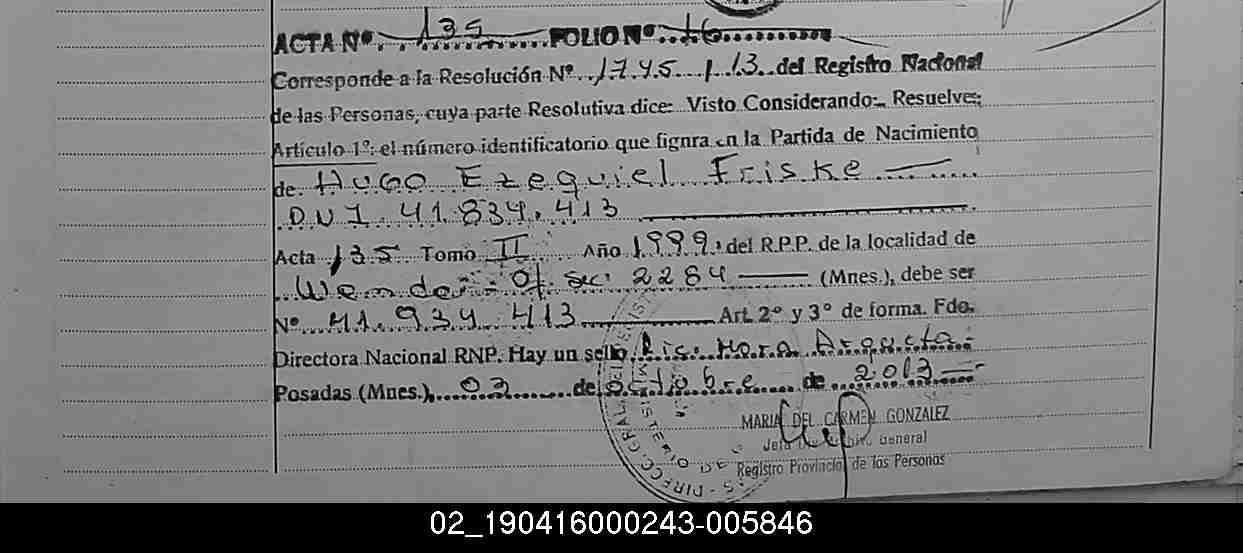 ACTA Nº. 135 FOLIO Nº 76
Corresponde a la Resolución Nº 1745 / 13. del Registro Nacional
de las Personas, cuya parte Resolutiva dice: Visto Considerando:. Resuelve:
Artículo 1º: el número identificatorio que fignra en la Partida de Nacimiento
de. Hugo Ezequiel Friske
D.N.I. 41.834.413
Acta 135 Tomo II Año 1999, del R.P.P. de la localidad de
Wanda - Of. sec. 2284 (Mnes.), debe ser
Nº 41.934.413 Art. 2º y 3º de forma. Fdo.
Directora Nacional RNP. Hay un sello. Lis. Mora Arqueta.
Posadas (Mnes.), 02 de octubre de 2013
MARIA DEL CARMEN GONZALEZ
General
Registro Provincial de las Personas
02_190416000243-005846